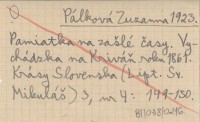 Pálková Zuzanna 1923.
Pamiatka na zašlé časy. Vy-
chádzka na Kriváň roku 1861.
Krásy Slovenska (Lipt. Sv.
Mikuláš) 3, nr 4: 149-150.